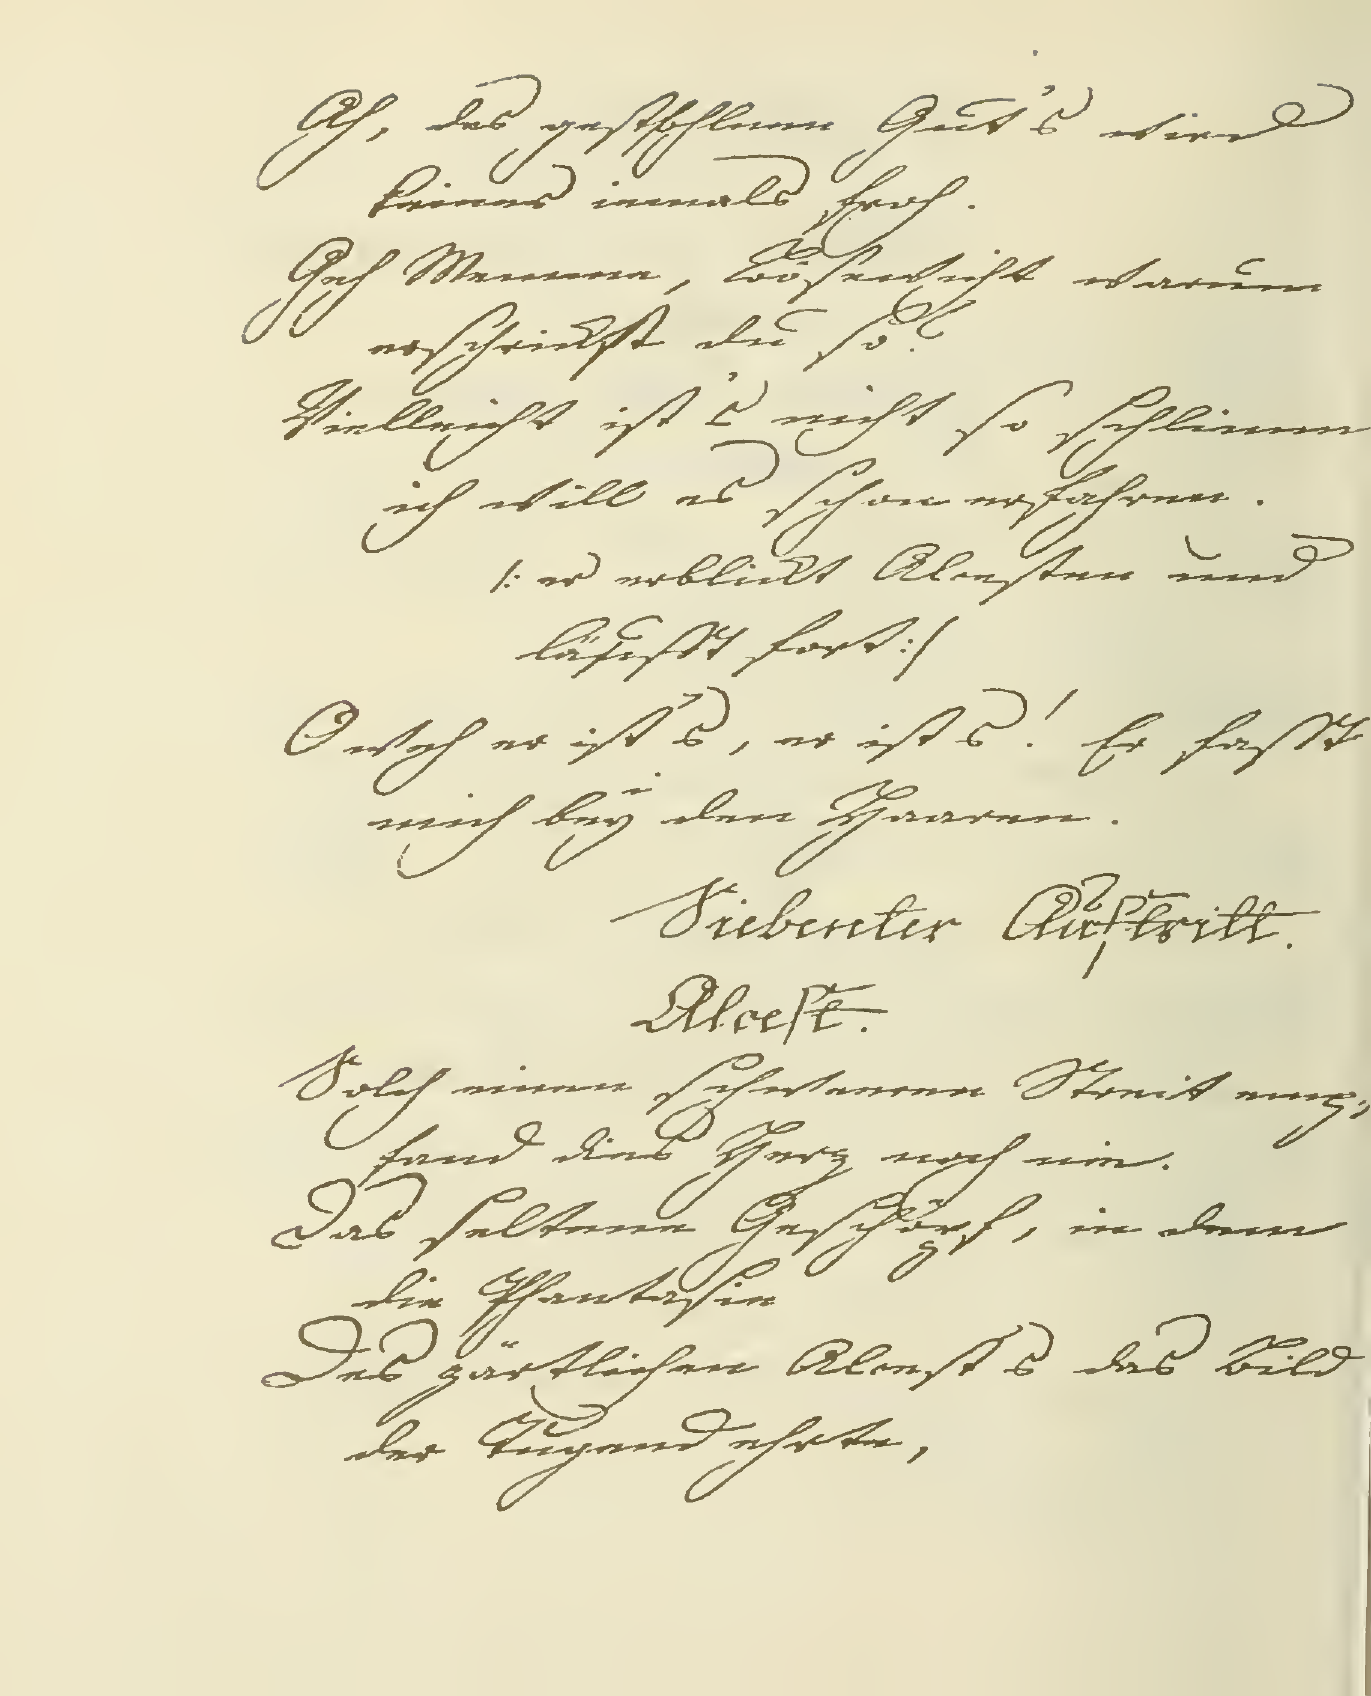 Ach, des gestohlnen Gut's wird
keiner iemals froh.
Geh Memme, Bösewicht warum
erschrickst du so?
Vielleicht ist's nicht so schlimm
ich will es schon erfahren.
/: er erblickt Alcesten und
läufft fort :/
O weh er ist's, er ist s! Er fasst
mich bey den Haaren.
Siebenter Auftritt.
Alcest.
Solch einen schweren Streit emp,,
fand dies Herz noch nie.
Das seltene Geschöpf, in dem
die Phantasie
Des zärtlichen Alcest's das Bild
der Tugend ehrte,